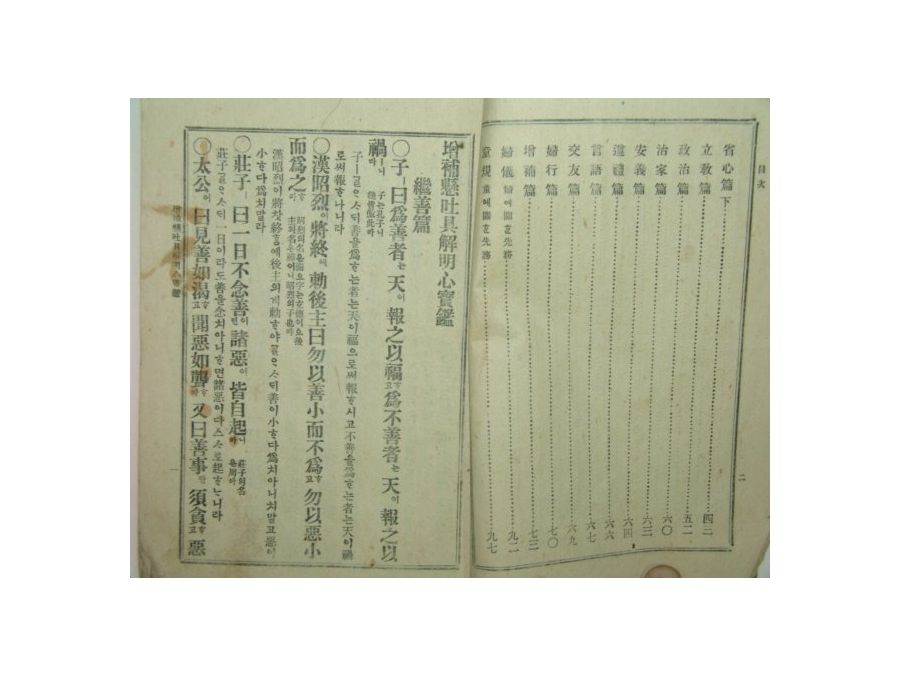 目次
省心篇下 四二
立教篇 五二
政治篇 六〇
治家篇 六三
安義篇 六四
遵禮篇 六六
言語篇 六七
交友篇 六九
婦行篇 七〇
增補篇 七三
婦儀 九二
童規 九七
二
增補懸吐具解明心寶鑑
繼善篇
○子ㅣ曰爲善者는天이報之以福하고爲不善者는天이報之以
禍ㅣ니라 子는孔子니
子ㅣᄀᆞᆯᄋᆞ스ᄃᆡ善을爲ᄒᆞ는者는天이福으로ᄡᅥ報ᄒᆞ시고不善을爲ᄒᆞ는者는天이禍
로ᄡᅥ報ᄒᆞ나니라
○漢昭烈이將終에勅後主曰勿以善小而不爲하고勿以惡小
而爲之하라
漢昭烈이將찻終ᄒᆞᆷ에後主의게勅ᄒᆞ야ᄀᆞᆯᄋᆞ스ᄃᆡ善이小ᄒᆞ다爲치아니치말고惡이
小ᄒᆞ다爲치말라
○莊子ㅣ曰一日不念善이면諸惡이皆自起니라 莊子의名은周라
莊子ᄀᆞᆯᄋᆞ스ᄃᆡ一日이라도善을念치아니ᄒᆞ면諸惡이다스스로起ᄒᆞᄂᆞ니라
○太公이曰見善如渴하고聞惡如聾하라又曰善事란須貪하고惡
一